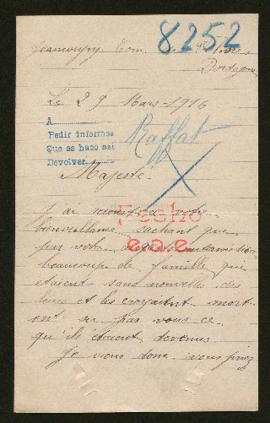 8252
Dordogne
Le 29 Mars 1916
A
Pedir informes
Que se hace así
Devolver
Raffat
Majesté
J'ai recours à votre
Fecho
bienveillance sachant que
e.o.e.
par votre
beaucoup de famille qui
étaient sans nouvelles des
leurs et les croyaient mort
ont su par vous ce
qu'ils étaient devenus
Je viens donc vous priez